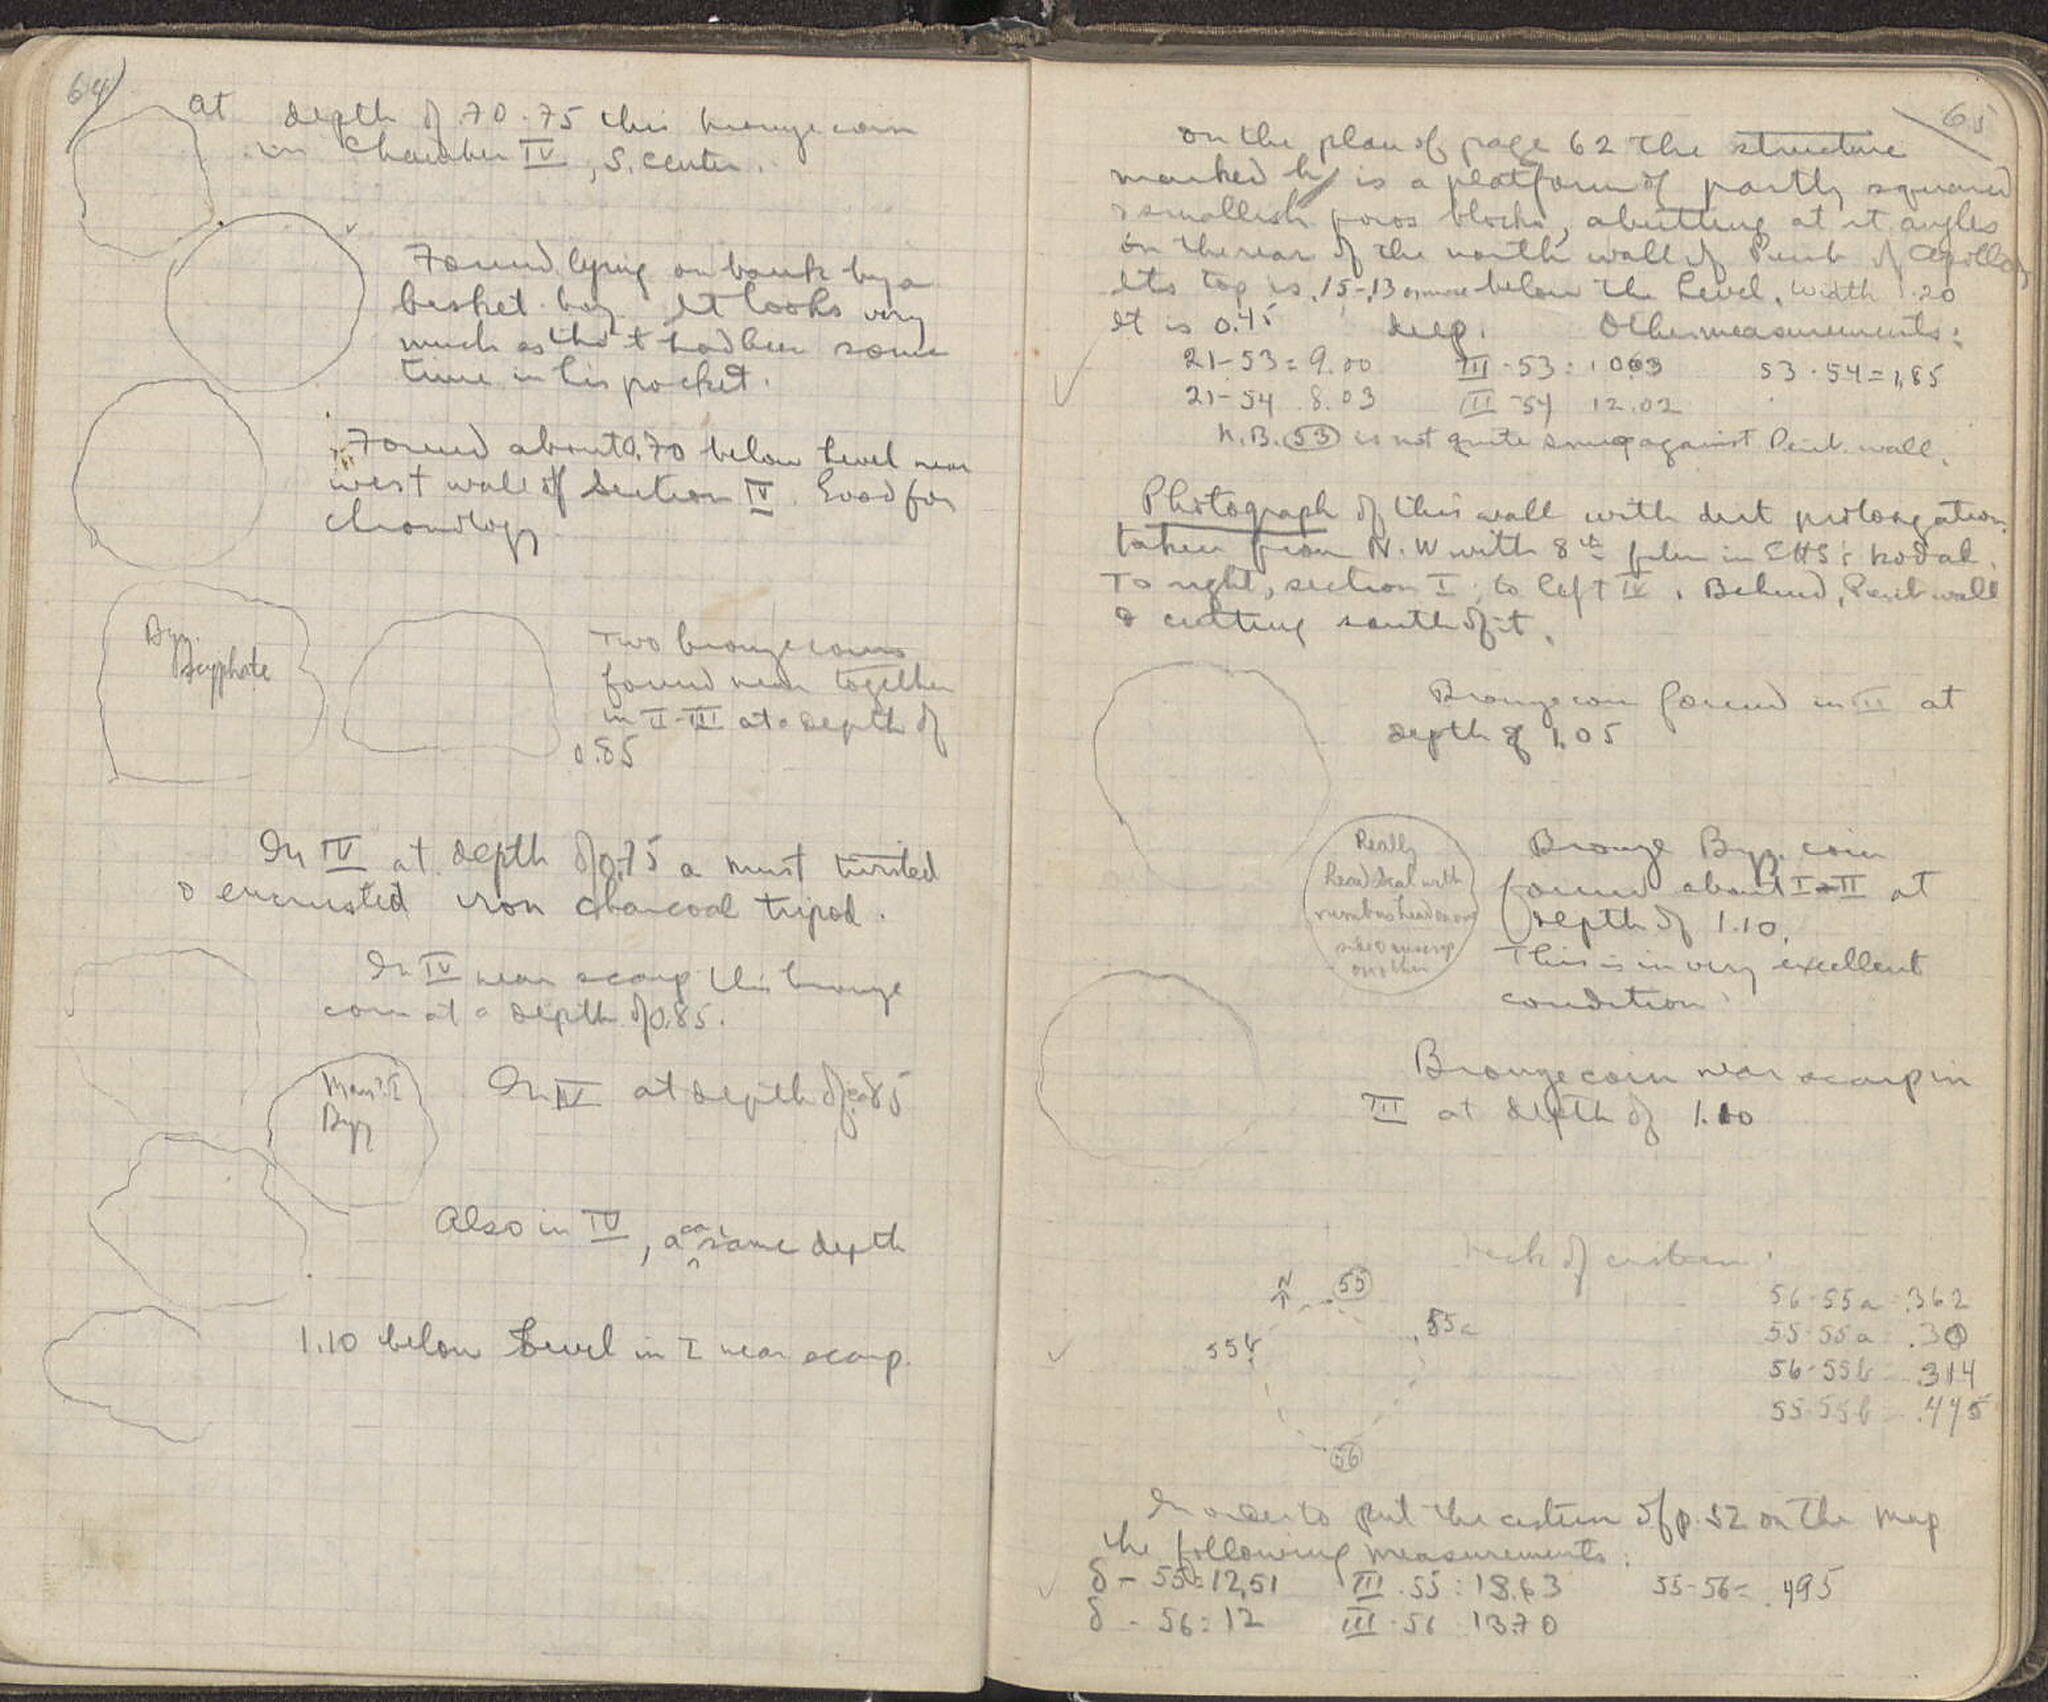 64
at depth of .70-.75 this bronze coin
in Chamber IV, S. center.
Found lying on bank by a
basket boy. It looks very
much as tho' it had been some
time in his pocket.
Found about 0.70 below Level near
west wall of Section IV. Good for
chronology
Byz.
Scyphate
Two bronze coins
found near together
in II-III at a depth of
0.85
In IV at depth of 0.75 a most twisted
& encrusted iron charcoal tripod.
In IV near scarp this bronze
coin at a depth of 0.85.
Man? I
Byz
In IV at depth of 0.85
Also in IV, at ca same depth
1.10 below Level in I near scarp.
65
On the plan of page 62 the structure
marked h is a platform of partly squared
& smallish poros blocks, abutting at rt angles
on the rear of the north wall of Perib of Apollo
Its top is .15-.13 or more below the Level. Width 1.20
It is 0.45 deep. Other measurements:
21-53 = 9.00 III-53 = 10.63 53-54 = 1.85
21-54 8.03 III-54 12.02
N.B. 53 is not quite snug against Perib. wall.
Photograph of this wall with dirt prolongation
taken from N.W with 8th film in CHS's kodak.
To right, section I, to left IV. Behind, Perib wall
& cutting south of it.
Bronze coin found in III at
depth of 1.05
Really
lead seal with
nimbus head on one
side & inscrip
on other
Bronze Byz. coin
found about I-II at
depth of 1.10.
This is in very excellent
condition.
Bronze coin near scarp in
III at depth of 1.10
Neck of cistern.
N
55
55a
55b
56
56-55a .362
55-55a .30
56-55b .314
55-55b .445
In order to put the cistern of p. 52 on the map
the following measurements:
δ - 55 = 12.51 III-55 = 13.63 55-56 = .495
δ - 56 = 12 III-56 13.70